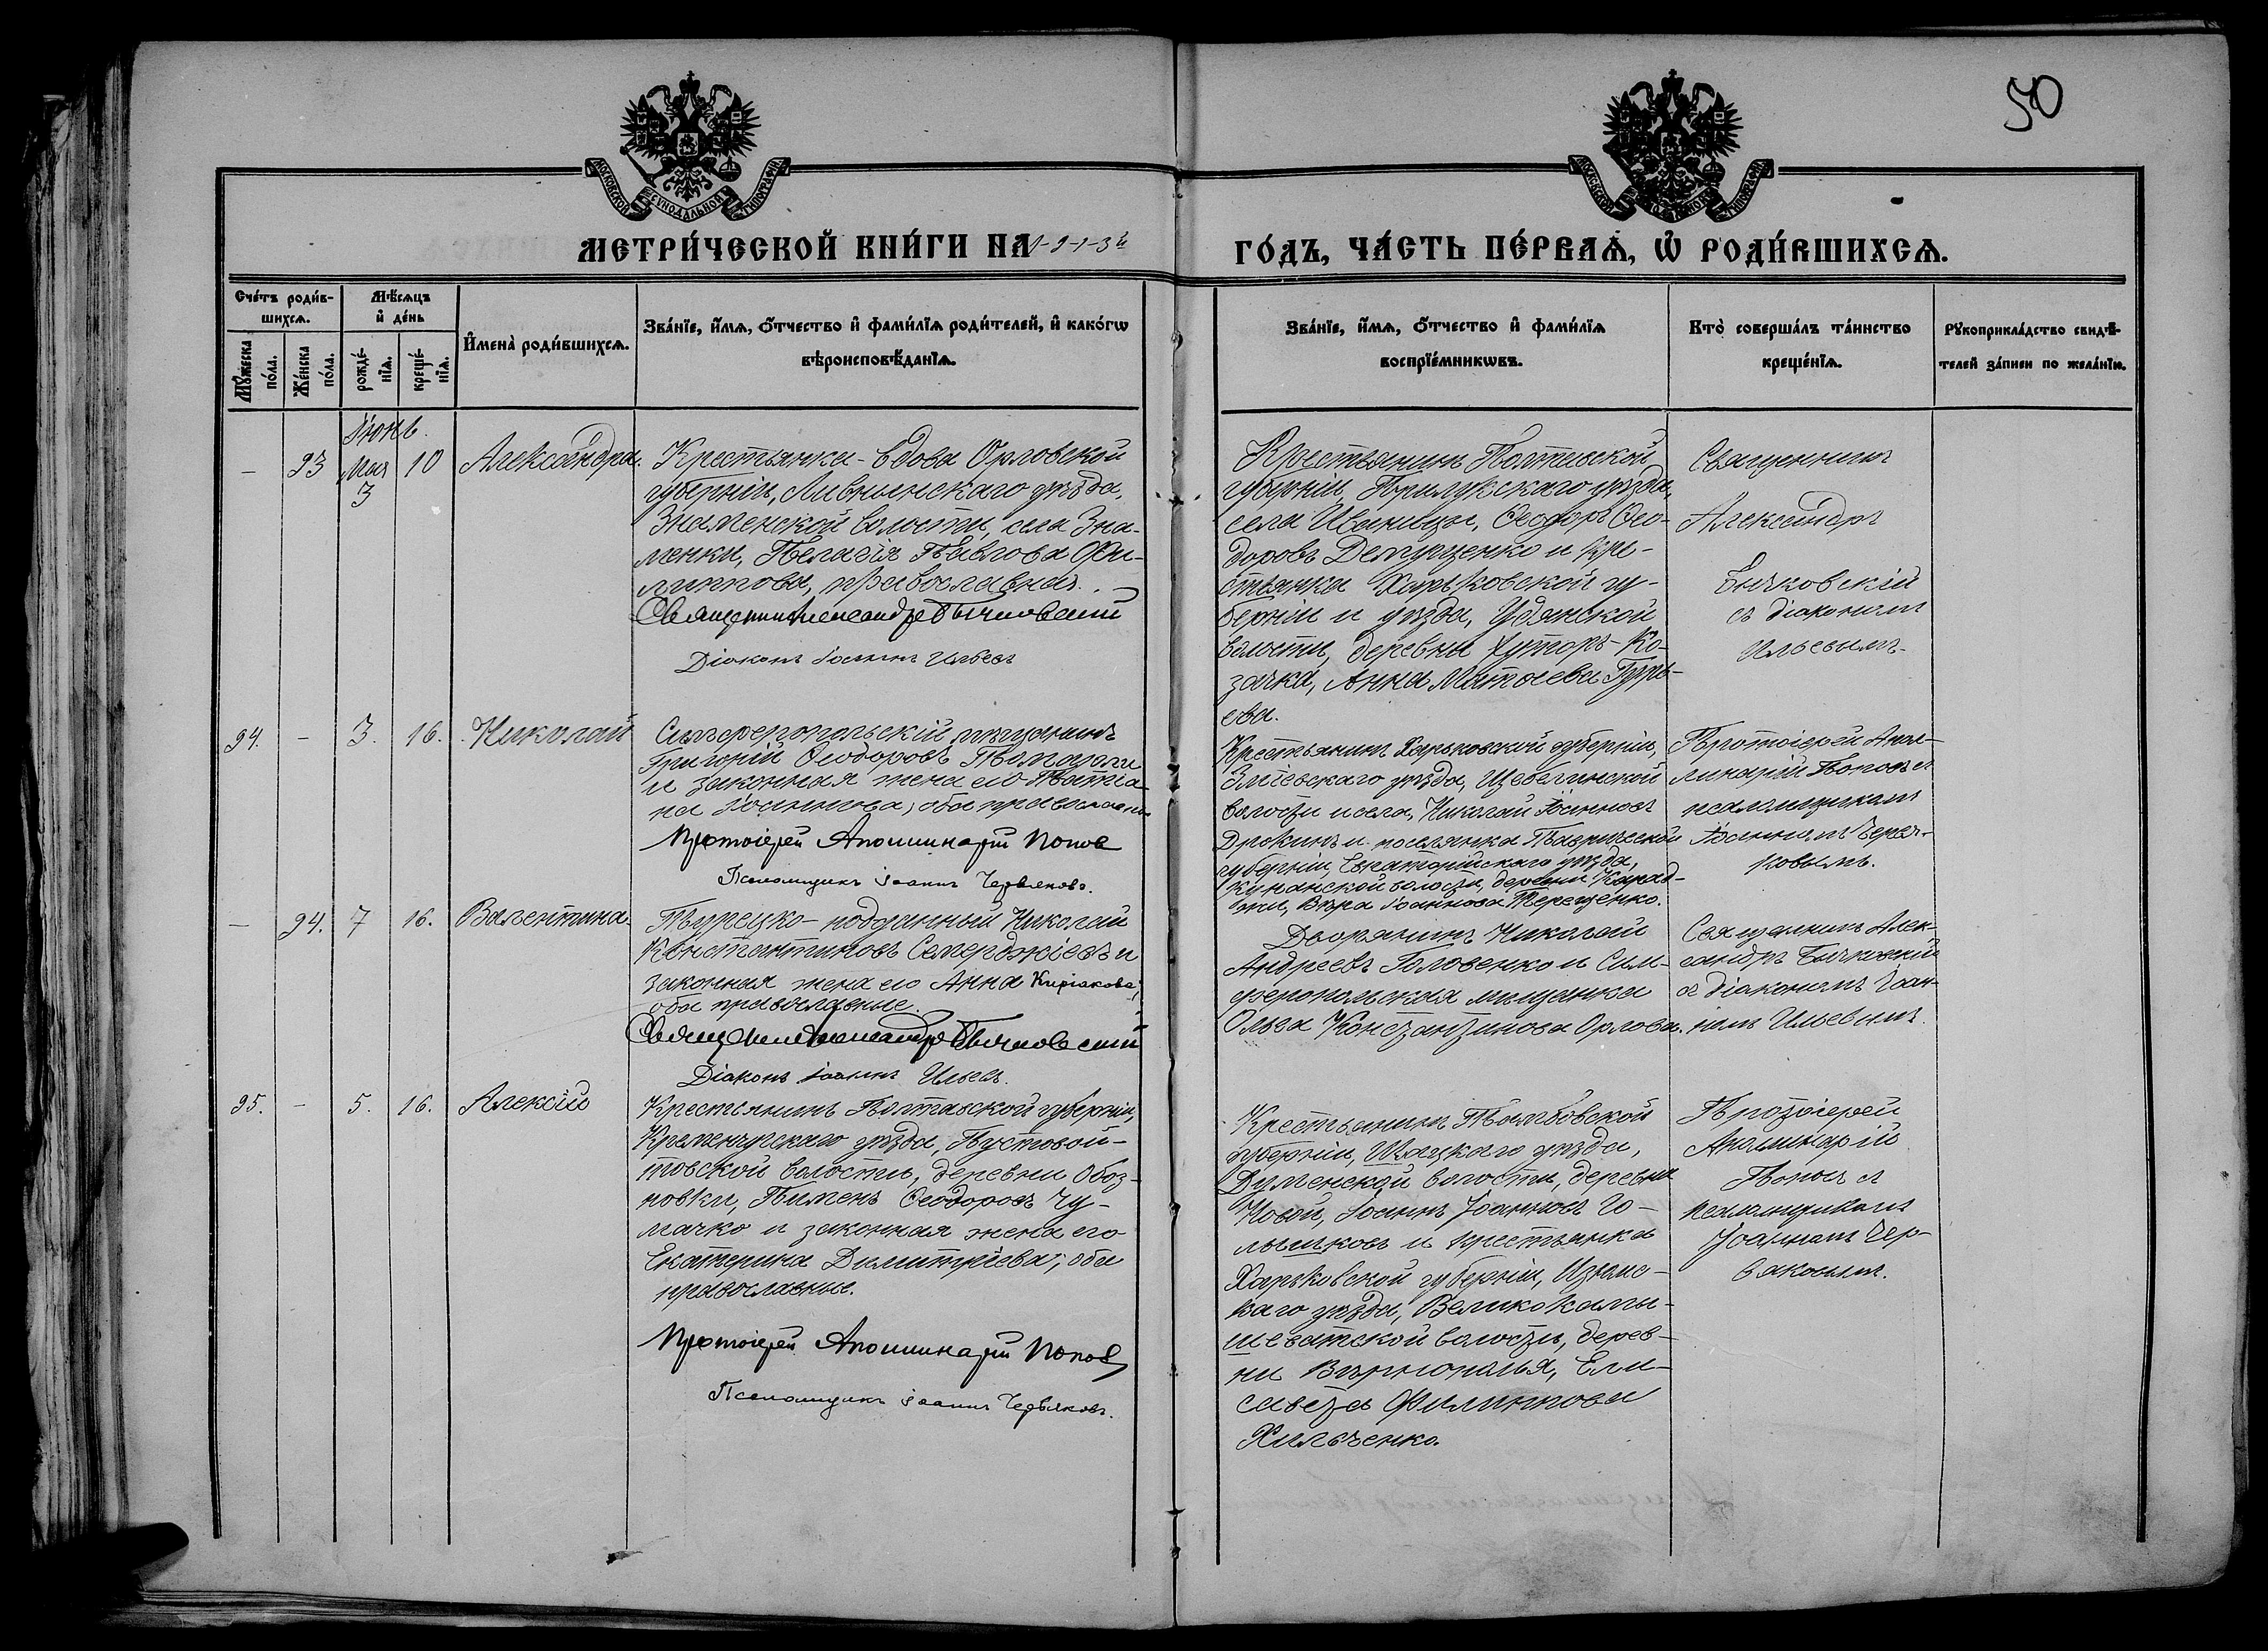 50
МОСКОВСКОЙ СѴНОДАЛЬНОЙ ТИПОГРАФІИ
МЕТРИ́ЧЕСКОЙ КНИ́ГИ НА 1913й
ГО́ДЪ, ЧА́СТЬ ПЕ́РВАѦ, Ѡ҆ РОДИ́ВШИХСѦ.
Сче́тъ роди́в-
шихсѧ.
Мѣ́сѧцъ
и҆ де́нь
Мꙋ́жеска
по́ла.
Же́нска
по́ла.
рожде́-
нїѧ.
креще́-
нїѧ.
И҆мена̀ роди́вшихсѧ.
Зва́нїе, и҆́мѧ, ѻ҆́тчество и҆ фами́лїѧ роди́телей, и҆ како́гѡ
вѣроисповѣ́данїѧ.
Зва́нїе, и҆́мѧ, ѻ҆́тчество и҆ фами́лїѧ
воспрїе́мникѡвъ.
Кто̀ соверша́лъ та́инство
креще́нїѧ.
Рꙋкоприкла́дство свидѣ́-
телей за́писи по жела́нїю.
Іюнь.
— 93 Мая 3 10 Александра.
Крестьянка-вдова Орловской
губерніи, Ливненскаго уѣзда,
Знаменской волости, села Зна-
менки, Пелагія Павлова Фи-
липпова, православная.
Священникъ Александръ Бычковскій
Діаконъ Іоаннъ Ильевъ
Крестьянинъ Полтавской
губерніи, Прилукскаго уѣзда,
села Иваницы, Ѳеодоръ Ѳео-
доровъ Демущенко и кре-
стьянка Харьковской гу-
берніи и уѣзда, Удянской
волости, деревни Хуторъ-Ко-
зачка, Анна Матѳеева Гурь-
ева.
Священникъ
Александръ
Бычковскій
съ діакономъ
Ильевымъ.
94. — 3. 16. Николай
Симферопольскій мѣщанинъ
Григорій Ѳеодоровъ
и законная жена его Татіа-
на Іоаннова, оба православн.
Протоіерей Аполлинарій Попов
Псаломщикъ Іоаннъ Червяковъ.
Крестьянинъ Харьковской губерніи,
Зміевскаго уѣзда, Шебелинской
волости и села, Николай Іоанновъ
Дрокинъ и поселянка Таврической
губерніи, Евпаторійскаго уѣзда,
деревни Карад-
жи, Вѣра Іоаннова Терещенко.
Протоіерей Апол-
линарій Поповъ съ
псаломщикомъ
Іоанномъ Червя-
ковымъ.
— 94. 7 16. Валентина.
Турецко-подданный Николай
Константиновъ Семерджіевъ и
законная жена его Анна Киріакова,
оба православные.
Священникъ Александръ Бычковскій
Діаконъ Іоаннъ Ильевъ.
Дворянинъ Николай
Андреевъ Головенко и Сим-
феропольская мѣщанка
Ольга Константинова Орлова.
Священникъ Алек-
сандръ Бычковскій
съ діакономъ Іоан-
номъ Ильевымъ.
95. — 5. 16. Алексій
Крестьянинъ Полтавской губерніи,
Кременчугскаго уѣзда, Пустовой-
товской волости, деревни Обоз-
новки, Пименъ Ѳеодоровъ Чу-
мачко и законная жена его
Екатерина Димитріева, оба
православные.
Протоіерей Аполлинарій Попов
Псаломщикъ Іоаннъ Червяковъ.
Крестьянинъ Тамбовской
губерніи, Шацкаго уѣзда,
волости, деревни
Новой, Іоаннъ Іоанновъ Го-
лышковъ и крестьянка
Харьковской губерніи, Изюмс-
каго уѣзда, Великокамы-
шеватской волости, дерев-
ни Вѣрнополья, Ели-
савета Филиппова
Хильченко.
Протоіерей
Аполинарій
Поповъ съ
псаломщикомъ
Іоанномъ Чер-
вяковымъ.